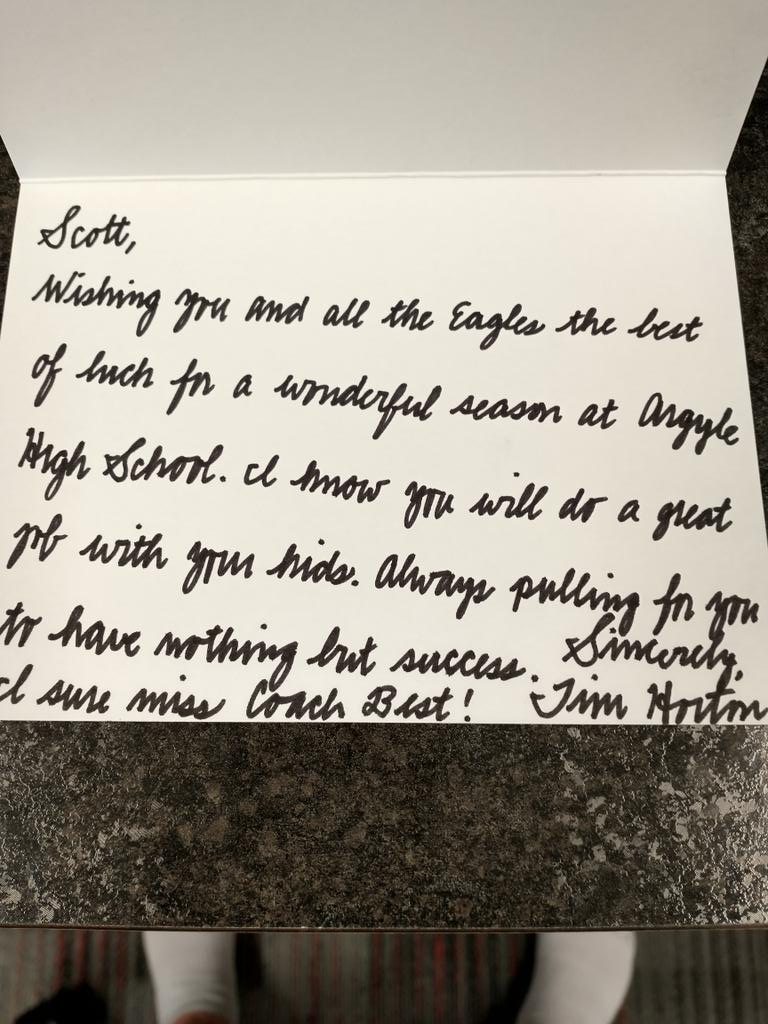 Scott,
Wishing you and all the Eagles the best
of luck for a wonderful season at Argyle
High School. I know you will do a great
job with your kids. Always pulling for you
to have nothing but success. Sincerely,
I sure miss Coach Best! Tim Horton